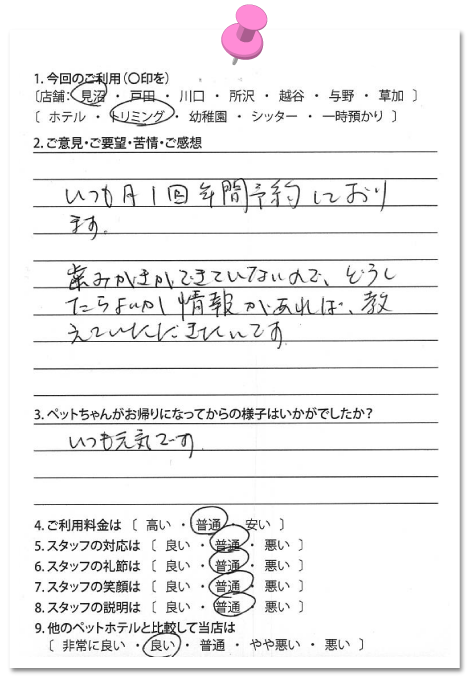 1. 今回のご利用(〇印を)
〔店舗： 見沼 ・ 戸田 ・ 川口 ・ 所沢 ・ 越谷 ・ 与野 ・ 草加 〕
〔 ホテル ・ トリミング ・ 幼稚園 ・ シッター ・ 一時預かり 〕
2. ご意見・ご要望・苦情・ご感想
いつも月1回年間予約しており
ます。
歯みがきができていないので、どうし
たらよいか情報があれば、教
えていただきたいです
3. ペットちゃんがお帰りになってからの様子はいかがでしたか？
いつも元気でーす。
4. ご利用料金は 〔 高い ・ 普通 ・ 安い 〕
5. スタッフの対応は 〔 良い ・ 普通 ・ 悪い 〕
6. スタッフの礼節は 〔 良い ・ 普通 ・ 悪い 〕
7. スタッフの笑顔は 〔 良い ・ 普通 ・ 悪い 〕
8. スタッフの説明は 〔 良い ・ 普通 ・ 悪い 〕
9. 他のペットホテルと比較して当店は
〔 非常に良い ・ 良い ・ 普通 ・ やや悪い ・ 悪い 〕